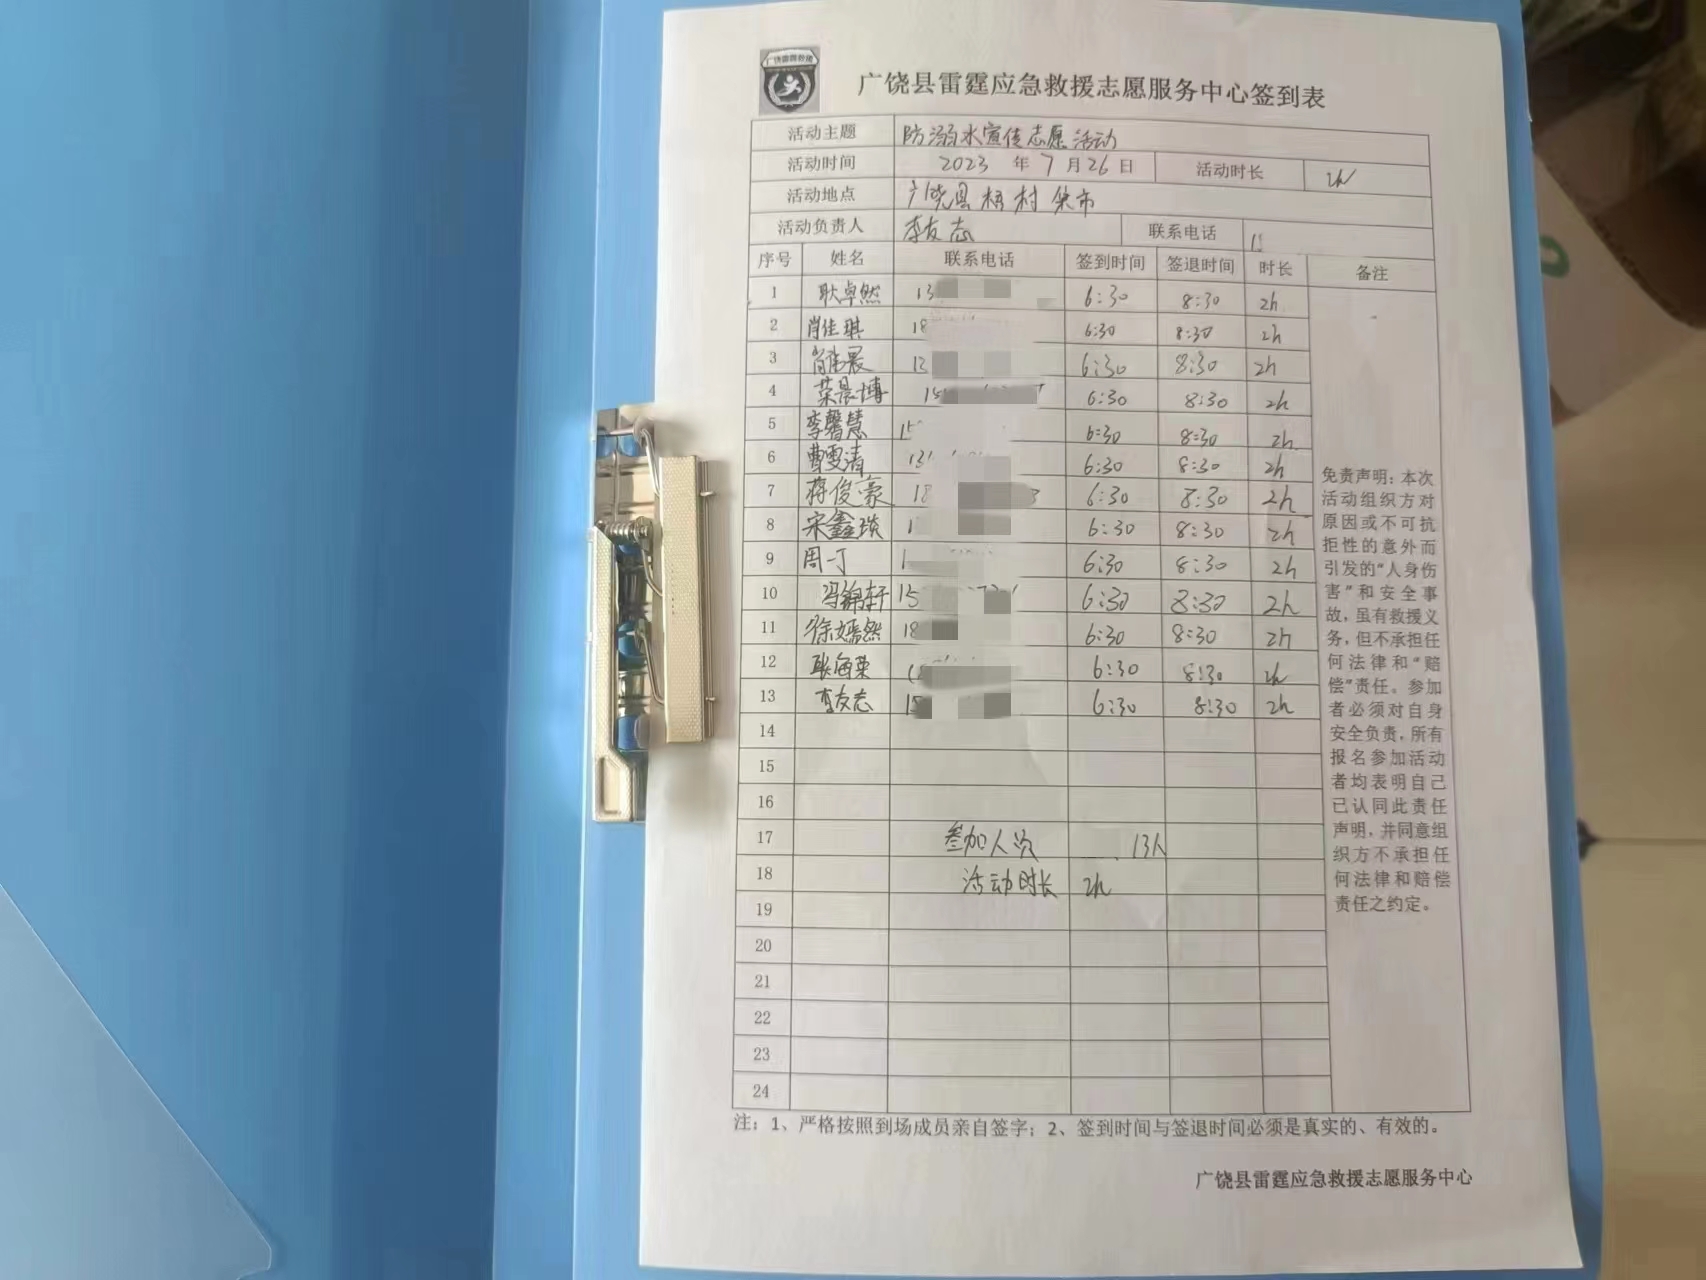 广饶雷霆救援
广饶县雷霆应急救援志愿服务中心签到表
活动主题 防溺水宣传志愿活动
活动时间 2023 年 7 月 26 日 活动时长 2h
活动地点 广饶县梧村集市
活动负责人 李友志 联系电话
序号 姓名 联系电话 签到时间 签退时间 时长 备注
1 耿卓然 13 6:30 8:30 2h
2 肖佳琪 18 6:30 8:30 2h
3 6:30 8:30 2h
4 荣晨博 15 6:30 8:30 2h
5 李馨慧 15 6:30 8:30 2h
6 曹雯清 6:30 8:30 2h
7 蒋俊豪 18 6:30 8:30 2h
8 宋鑫琰 1 6:30 8:30 2h
9 周一丁 1 6:30 8:30 2h
10 冯锦轩 15 6:30 8:30 2h
11 徐嫣然 18 6:30 8:30 2h
12 6:30 8:30 2h
13 李友志 15 6:30 8:30 2h
14
15
16
17 参加人员 13人
18 活动时长 2h
19
20
21
22
23
24
免责声明：本次
活动组织方对
原因或不可抗
拒性的意外而
引发的“人身伤
害”和安全事
故，虽有救援义
务，但不承担任
何法律和“赔
偿”责任。参加
者必须对自身
安全负责，所有
报名参加活动
者均表明自己
已认同此责任
声明，并同意组
织方不承担任
何法律和赔偿
责任之约定。
注：1、严格按照到场成员亲自签字；2、签到时间与签退时间必须是真实的、有效的。
广饶县雷霆应急救援志愿服务中心